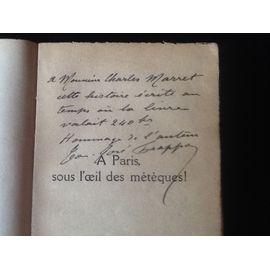 A Monsieur Charles Marret
cette histoire écrite au
temps où la livre
valait 240 frs
Hommage de l'auteur
Jean-José Frappa
A Paris,
sous l'œil des métèques!